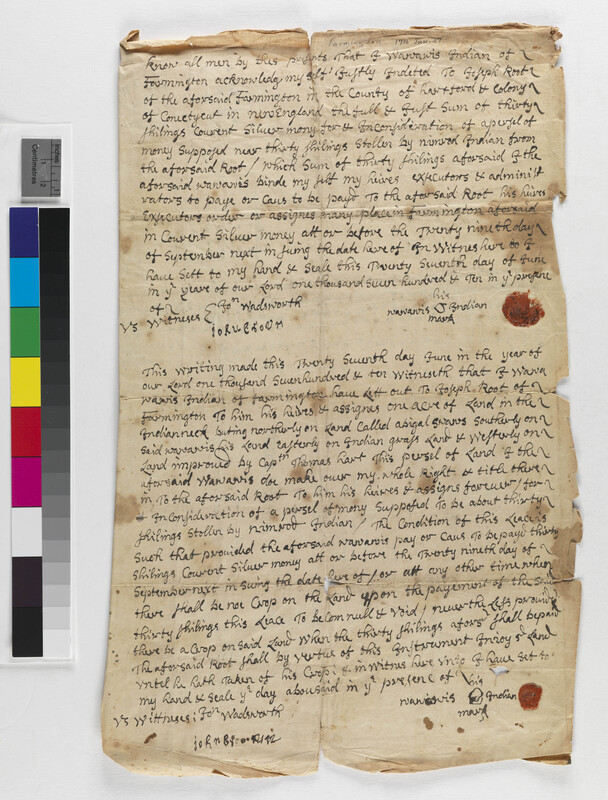 Farmington 1711 Juner
Know all men by thes presents That I Wawawis Indian of
Farmington acknowledg my self Justly Indeted To Joseph Root
of the aforsaid Farmington in the County of hartford & Colony
of Conetycut in new England the full & Just Sum of thirty
shilings Courent Silver mony for & In Consideration of a persel of
mony Supposed near thirty Shilings Stollen by nimrod Indian from
the aforsaid Root / which Sum of thirty shilings aforsaid I the
aforsaid wawawis binde my self my heires executors & adminis
trators to paye or Caus to be payd To the aforsaid Root his heires
Executors order or assignes in any place in farmington aforesaid
in Courent Silver money att or before the Twenty nineth day
of September next in suing the date here of In Witnes here to I
have Sett to my hand & Seale this Twenty Seventh day of June
in ye yeare of our Lord one thousand Seven hundred & Ten in ye presenc
of
his
Ys Witneses Jon Wadsworth wawawis Indian
John Brown mark
This Writing made this Twenty Seventh day June in the year of
our Lord one thousand Sevenhundred & ten Witneseth that I Wawa
wawis Indian of farmington have Lett out To Joseph Root of
Farmington To him his heires & assignes one Acre of Land in the
Indian neck buting northerly on Land Called abigal swavs Southerly on
Said wawawis his Land easterly on Indian grass Land & Westerly on
Land improved by Captn Thomas hart This persel of Land I the
aforsaid Wawawis doe make over my whole Right & title there
in To the aforsaid Root To him his heires & assigns forever / for
& In Consideration of a persel of mony Supposed To be about thirty
shilings Stollen by nimrod Indian / The Condition of this Leace is
Such that provided the aforsaid wawawis pay or Caus To be payd thirty
shilings Courent Silver money att or before the Twenty nineth day of
September next in suing the date here of / or att any other time when
there shall be noe Crop on the Land upon the payement of the said
thirty shilings this Leace To be Com null & Void / never the Less provided
there be a Crop on said Land When the thirty shilings aforsd shall be paid
The aforsaid Root shall by vertue of this Instrument Injoy sd Land
Untel he hath Taken of his Crop & in Witnes here unto I have set to
my hand & Seale ye day abousaid in ye presenc of
his
Ys Wittneses Jon Wadsworth wawawis Indian
mark
John